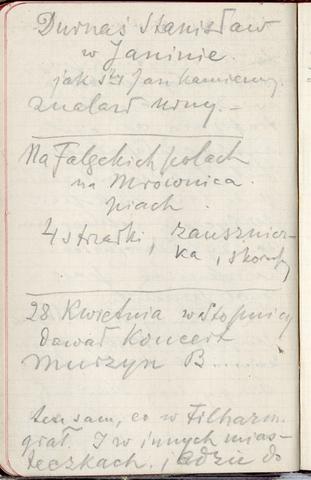 Durnaś Stanisław
w Janinie.
jak św Jan kamienny
znalazł urny. –
Na Falęckich polach
na Mrownica
piach.
4 strzałki, zausznicz-
ka, skorupy
28 Kwietnia w Stopnicy
dawał Koncert
Murzyn B.....
ten sam, co w Filharm.
grał. I w innych mias-
teczkach. i gdzie do